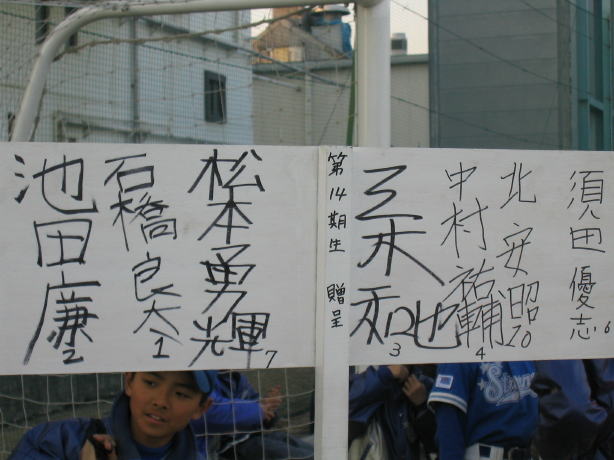 須田優志 6
北安昭 10
中村祐輔 4
三木和也 3
第14期生 贈呈
松本勇輝 7
石橋良太 1
池田廉 2